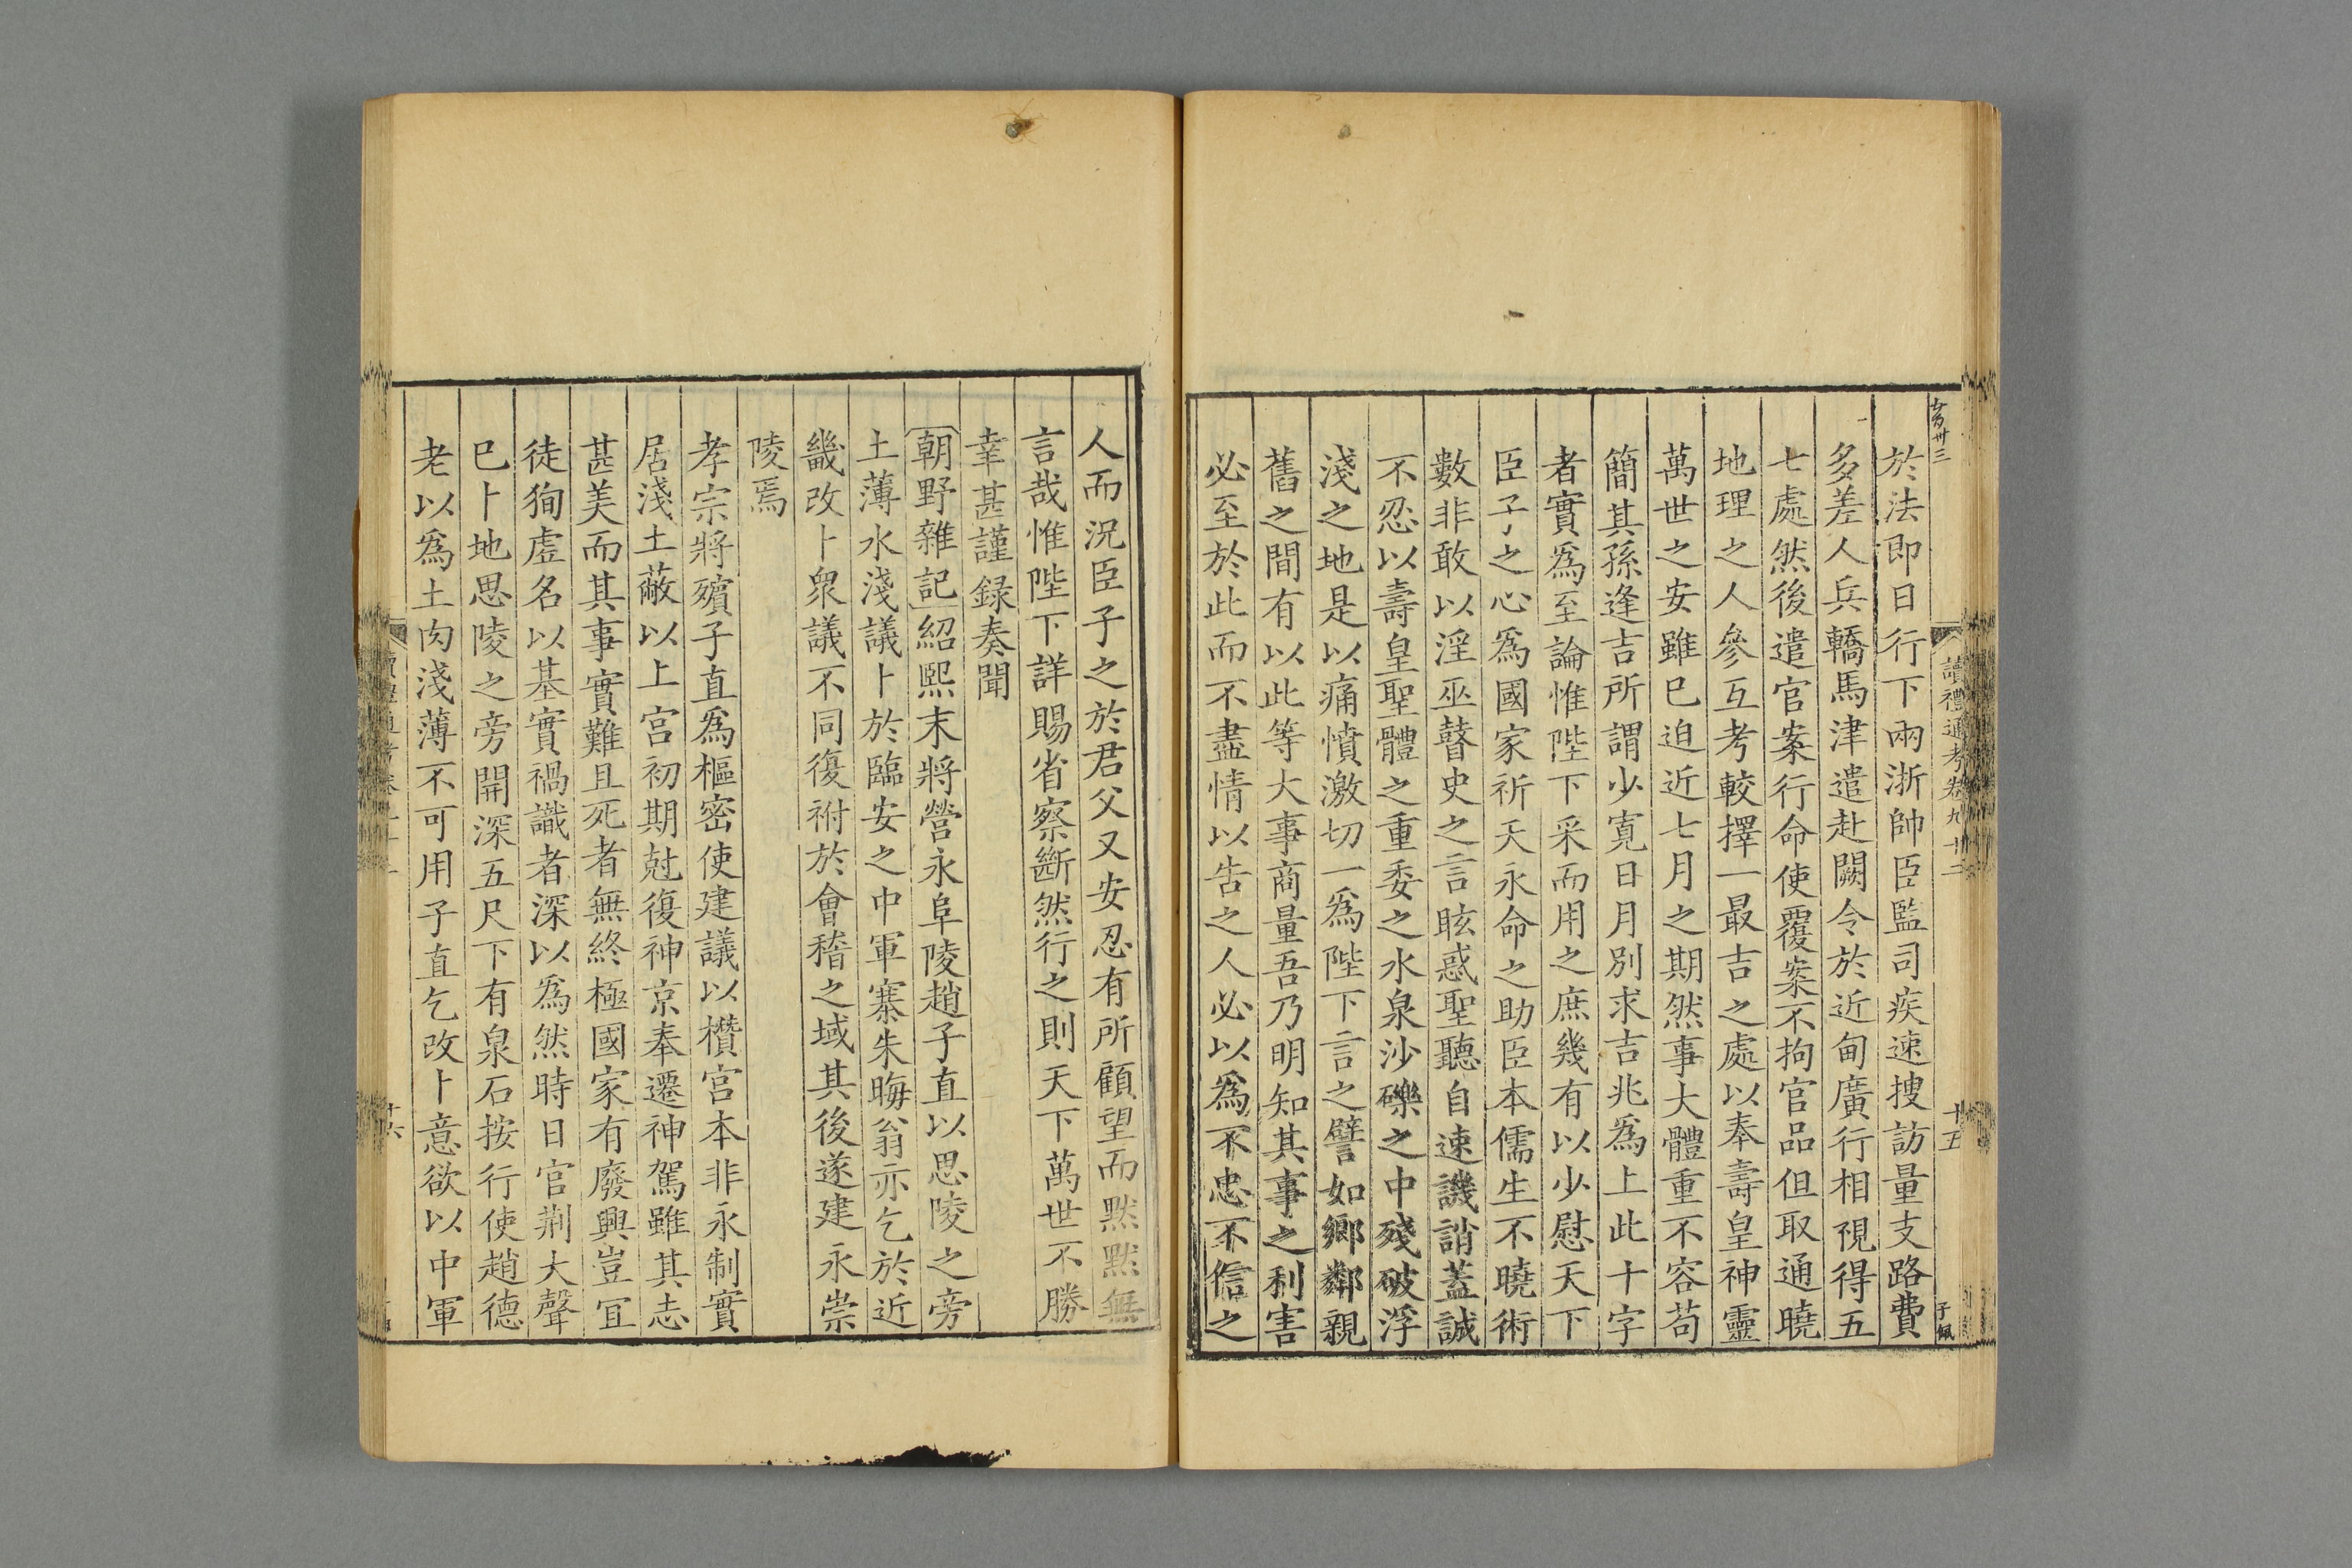 讀禮通考卷九十二
十五
於法即日行下兩浙帥臣監司疾速搜訪量支路費
多差人兵轎馬津遣赴闕令於近甸廣行相視得五
七處然後遣官案行命使覆案不拘官品但取通曉
地理之人參互考較擇一最吉之處以奉壽皇神靈
萬世之安雖已迫近七月之期然事大體重不容苟
簡其孫逢吉所謂少寬日月別求吉兆爲上此十字
者實爲至論惟陛下采而用之庶幾有以少慰天下
臣子之心爲國家祈天永命之助臣本儒生不曉術
數非敢以淫巫瞽史之言眩惑聖聽自速譏誚葢誠
不忍以壽皇聖體之重委之水泉沙礫之中殘破浮
淺之地是以痛憤激切一爲陛下言之譬如鄉鄰親
舊之間有以此等大事商量吾乃明知其事之利害
必至於此而不盡情以告之人必以爲不忠不信之
人而況臣子之於君父又安忍有所顧望而默默無
言哉惟陛下詳賜省察斷然行之則天下萬世不勝
幸甚謹録奏聞
朝野雜記紹熙末將營永阜陵趙子直以思陵之旁
土薄水淺議卜於臨安之中軍寨朱晦翁亦乞於近
畿改卜衆議不同復祔於會稽之域其後遂建永崇
陵焉
孝宗將殯子直爲樞密使建議以欑宮本非永制實
居淺土蔽以上宮初期尅復神京奉遷神駕雖其志
甚美而其事實難且死者無終極國家有廢興豈宜
徒狥虛名以基實禍識者深以爲然時日官荆大聲
巳卜地思陵之旁開深五尺下有泉石按行使趙德
老以爲土肉淺薄不可用子直乞改卜意欲以中軍
十六